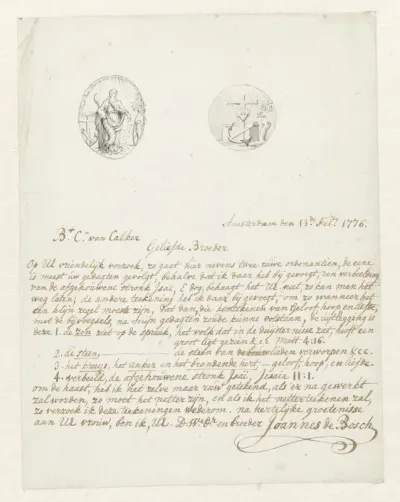 Amsterdam den 13de Febr. 1776.
Br. Cs. van Calker
Geliefde Broeder
Op Ul vriendelijk verzoek, zo gaat hier nevens twee ruive ordonantien, de eene
is meest uw gedagten gevolgt, behalve dat ik daar heb bij gevoegt, een verbeelding
van de afgehouwene stronk Jsaï, & dog, behaagt het Ul niet, zo kan men het
weg laten; de andere teekening heb ik daar bij gevoegt, om zo wanneer het
een klijn zegel moest zijn, dat dan, die kenteekenen van Geloof hoop en liefde,
met de bijvoegsels, na mijn gedagten zoude kunne volstaan, de uijtlegging is
deze 1. de zon ziet op de spreuk, het volk dat in de duijsternisse zat, heeft een
groot ligt gezien &c Matt 4:16.
2. de steen, de steen van de bouwlieden verworpen &cc.
3. het kruijs, het anker en het brandende hert, — geloof, hoop, en liefde.
4. verbeeld, de afgehouwene stronk Jsaï, Jesaia 11:1.
om de haast, heb ik het zelve maar ruw geteekend, als er na gewerkt
zal worden, zo moet het netter zijn, en als ik het netter teekenen zal,
zo verzoek ik deze teekeningen wederom. na hertelijke groetenisse
aan Ul vrouw, ben ik, Ul. D.W. Dr. en broeder Joannes de Bosch